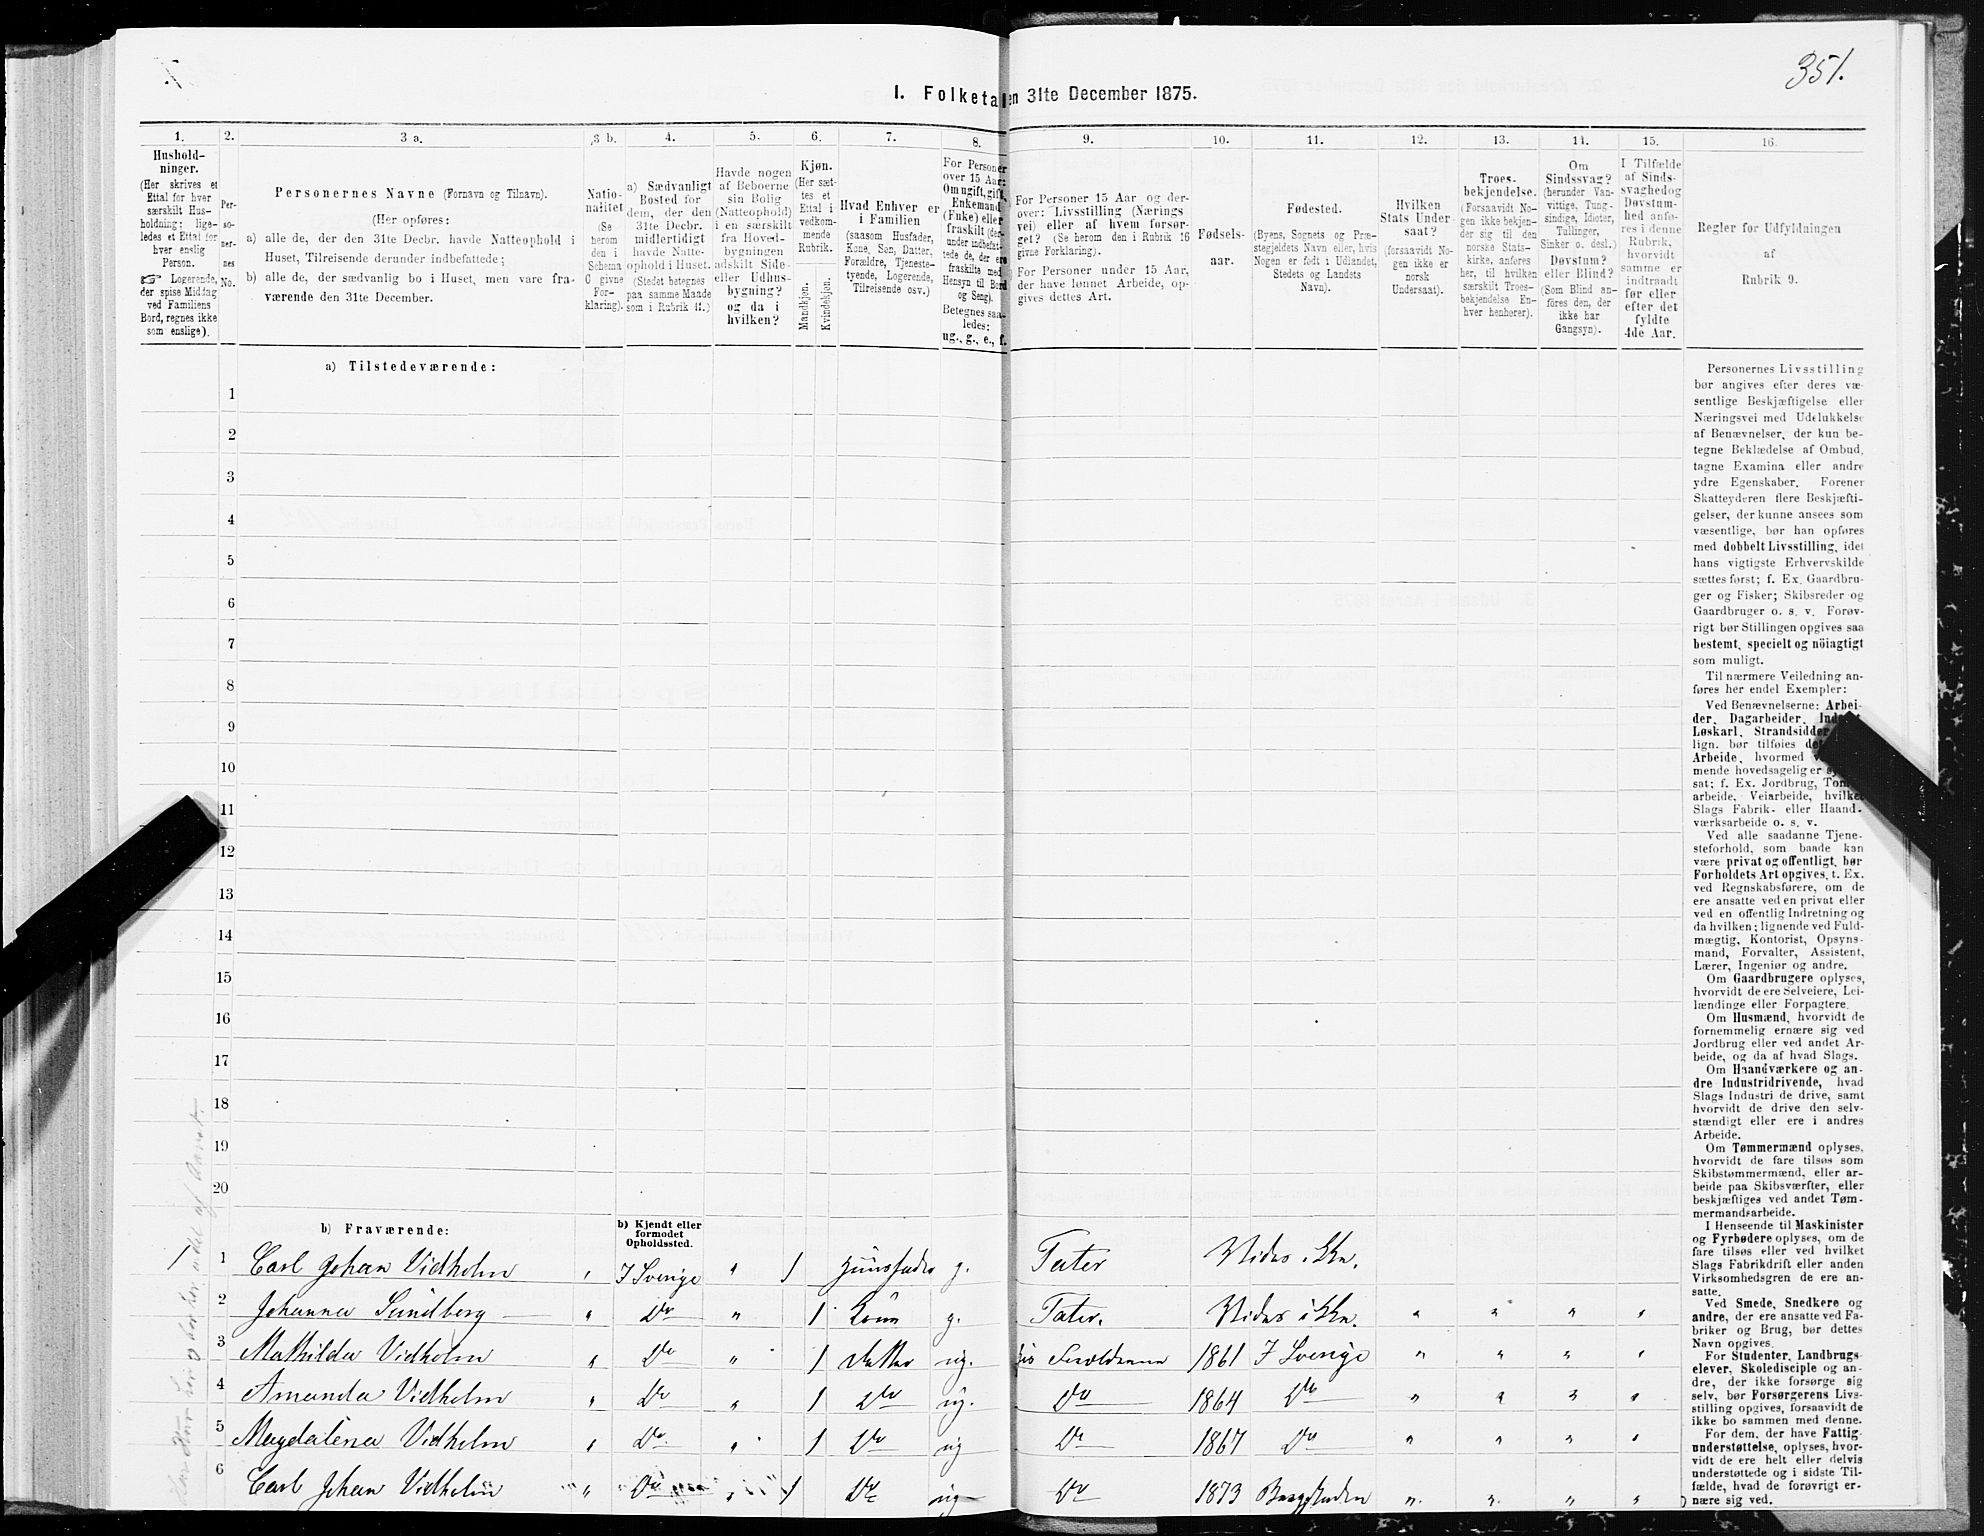 351.
I. Folketal den 31te December 1875.
1.
Hushold-
ninger.
(Her skrives et
Ettal for hver
særskilt Hus-
holdning; lige-
ledes et Ettal for
hver enslig
Person.
☞ Logerende,
der spise Middag
ved Familiens
Bord, regnes ikke
som enslige).
2.
Per-
so-
ner-
nes
No.
3 a.
Personernes Navne (Fornavn og Tilnavn).
(Her opføres:
a) alle de, der den 31te Decbr. havde Natteophold i
Huset, Tilreisende derunder indbefattede;
b) alle de, der sædvanlig bo i Huset, men vare fra-
værende den 31te December.
3 b.
Natio-
nalitet
(Se
herom
den i
Schema
6 givne
For-
klaring).
4.
a) Sædvanligt
Bosted for
dem, der den
31te Decbr.
midlertidigt
havde Natte-
ophold i Huset.
(Stedet betegnes
paa samme Maade
som i Rubrik 11.)
5.
Havde nogen
af Beboerne
sin Bolig
(Natteophold)
i en særskilt
fra Hoved-
bygningen
adskilt Side-
eller Udhus-
bygning?
og da i
hvilken?
6.
Kjøn.
(Her sæt-
tes et
Ettal i
vedkom-
mende
Rubrik.
Mandkjøn.
Kvindekjøn.
7.
Hvad Enhver er
i Familien
(saasom Husfader,
Kone, Søn, Datter,
Forældre, Tjeneste-
tyende, Logerende,
Tilreisende osv.)
8.
For Personer
over 15 Aar:
Om ugift, gift,
Enkemand
(Fuke) eller
fraskilt (der-
under indbefat-
tede de, der ere
fraskilte med
Hensyn til Bord
og Seng).
Betegnes saa-
ledes:
ug., g., e., f.
9.
For Personer 15 Aar og der-
over: Livsstilling (Nærings
vei) eller af hvem forsør-
get? (Se herom den i Rubrik 16
givne Forklaring).
For Personer under 15 Aar,
der have lønnet Arbeide, op-
gives dettes Art.
10.
Fødsels-
aar.
11.
Fødested.
(Byens, Sognets og Præ-
stegjeldets Navn eller, hvis
Nogen er født i Udlandet,
Stedets og Landets
Navn).
12.
Hvilken
Stats Under-
saat?
(forsaavidt No-
gen ikke er
norsk
Undersaat).
13.
Troes-
bekjendelse.
(Forsaavidt No-
gen ikke bekjen-
der sig til den
norske Stats-
kirke, anføres
her, til hvilken
særskilt Troes-
bekjendelse En-
hver henhører).
14.
Om
Sindssvag?
(herunder Van-
vittige, Tung-
sindige, Idioter,
Tullinger,
Sinker o. desl.)
Døvstum?
eller Blind?
(Som Blind an-
føres den, der
ikke har
Gangsyn).
15.
I Tilfælde
af Sinds-
svaghed og
Døvstum-
hed anfø-
res i denne
Rubrik,
hvorvidt
samme er
indtraadt
før eller
efter det
fyldte
4de Aar.
16.
Regler for Udfyldningen
af
Rubrik 9.
a) Tilstedeværende:
1
2
3
4
5
6
7
8
9
10
11
12
13
14
15
16
17
18
19
20
b) Fraværende:
b) Kjendt eller
formodet
Opholdssted.
1 1 Carl Johan Vidholm " I Sverige " 1 Huusfader g. Tater Vides ikke.
2 Johanna Sundberg " Do " 1 Kone g. Tater. Vides ikke. " " " "
3 Mathilda Vidholm " Do " 1 Datter ug. Forældrene 1861 I Sverige " " " "
4 Amanda Vidholm " Do " 1 Do ug. Do 1864 Do " " " "
5 Magdalena Vidholm " Do " 1 Do ug Do 1867 Do " " " "
6 Carl Johan Vidholm " Do " 1 Do ug Do 1873 Bergstaden " " " "
Personernes Livsstilling
bør angives efter deres væ-
sentlige Beskjæftigelse eller
Næringsvei med Udelukkelse
af Benævnelser, der kun be-
tegne Beklædelse af Ombud,
tagne Examina eller andre
ydre Egenskaber. Forener
Skatteyderen flere Beskjæfti-
gelser, der kunne ansees som
væsentlige, bør han opføres
med dobbelt Livsstilling, idet
hans vigtigste Erhvervskilde
sættes først; f. Ex. Gaardbru-
ger og Fisker; Skibsreder og
Gaardbruger o. s. v. Forøv-
rigt bør Stillingen opgives saa
bestemt, specielt og nöiagtigt
som muligt.
Til nærmere Veiledning an-
føres her endel Exempler:
Ved Benævnelserne: Arbei-
der, Dagarbeider,
Løskarl, Strandsidder
lign. bør tilføies
Arbeide, hvormed
mende hovedsagelig er
sat; f. Ex. Jordbrug,
arbeide, Veiarbeide, hvilket
Slags Fabrik- eller Haand-
værksarbeide o. s. v.
Ved alle saadanne Tjene-
steforhold, som baade kan
være privat og offentligt, bør
Forholdets Art opgives, t. Ex.
ved Regnskabsførere, om de
ere ansatte ved en privat eller
ved en offentlig Indretning og
da hvilken; lignende ved Fuld-
mægtig, Kontorist, Opsyns-
mand, Forvalter, Assistent,
Lærer, Ingeniør og andre.
Om Gaardbrugere oplyses,
hvorvidt de ere Selveiere, Lei-
lændinge eller Forpagtere.
Om Husmænd, hvorvidt de
fornemmelig ernære sig ved
Jordbrug eller ved andet Ar-
beide, og da af hvad Slags.
Om Haandværkere og an-
dre Industridrivende, hvad
Slags Industri de drive, samt
hvorvidt de drive den selv-
stændigt eller ere i andres
Arbeide.
Om Tømmermænd oplyses,
hvorvidt de fare tilsøs som
Skibstømmermænd, eller ar-
beide paa Skibsværfter, eller
beskjæftiges ved andet Tøm-
mermandsarbeide.
I Henseende til Maskinister
og Fyrbødere oplyses, om de
fare tilsøs eller ved hvilket
Slags Fabrikdrift eller anden
Virksomhedsgren de ere an-
satte.
Ved Smede, Snedkere og
andre, der ere ansatte ved Fa-
briker og Brug, bør dettes
Navn opgives.
For Studenter, Landbrugs-
elever, Skoledisciple og an-
dre, der ikke forsørge sig
selv, bør Forsørgerens Livs-
stilling opgives, forsaavidt de
ikke bo sammen med denne.
For dem, der have Fattig-
understøttelse, oplyses, hvor-
vidt de ere helt eller delvis
understøttede og i sidste Til-
fælde, hvad de forøvrigt er-
nære sig ved.